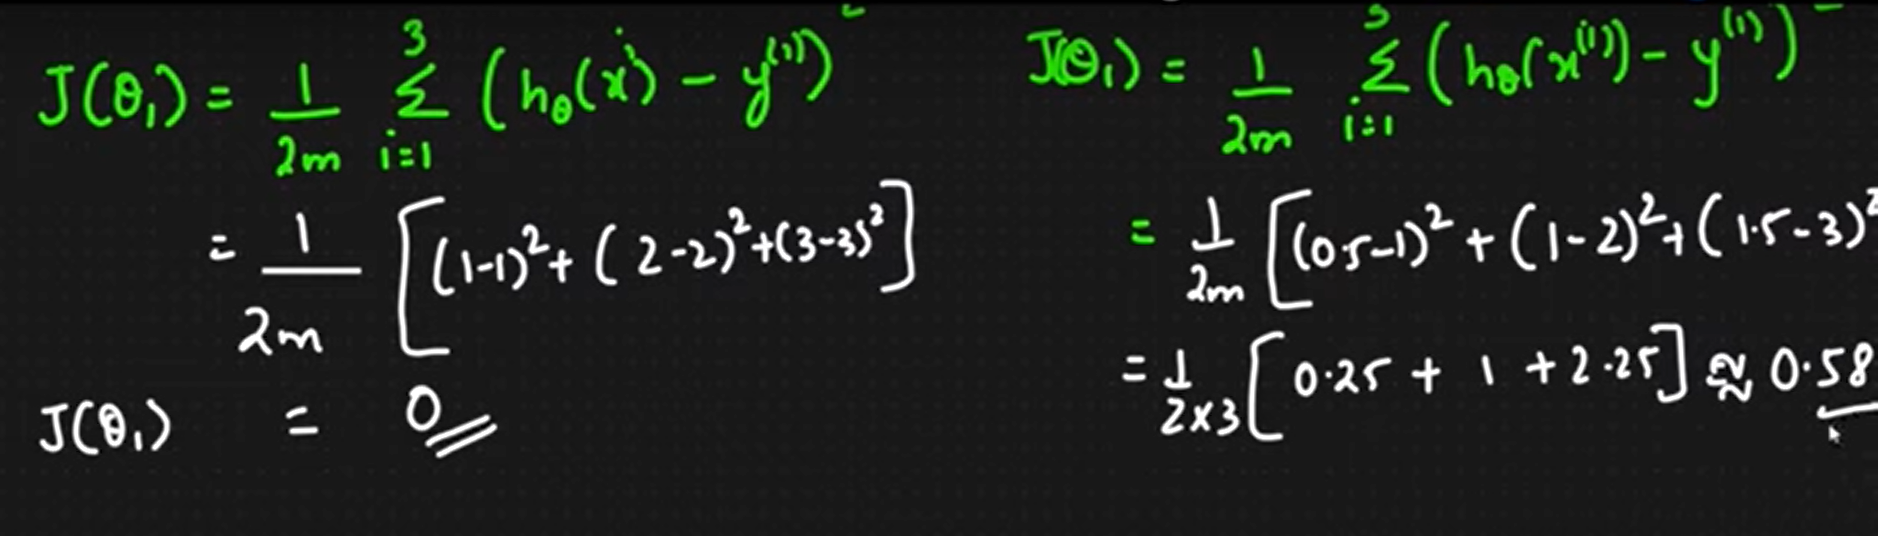 J(θ₁) = 1/2m 3Σi=1 (hθ(xⁱ) - y⁽ⁱ⁾)²
= 1/2m [(1-1)²+ (2-2)²+(3-3)²]
J(θ₁) = 0
J(θ₁) = 1/2m 3Σi=1 (hθ(x⁽ⁱ⁾) - y⁽ⁱ⁾)²
= 1/2m [(0.5-1)² + (1-2)² + (1.5-3)²
= 1/2x3 [0.25 + 1 + 2.25] ≈ 0.58